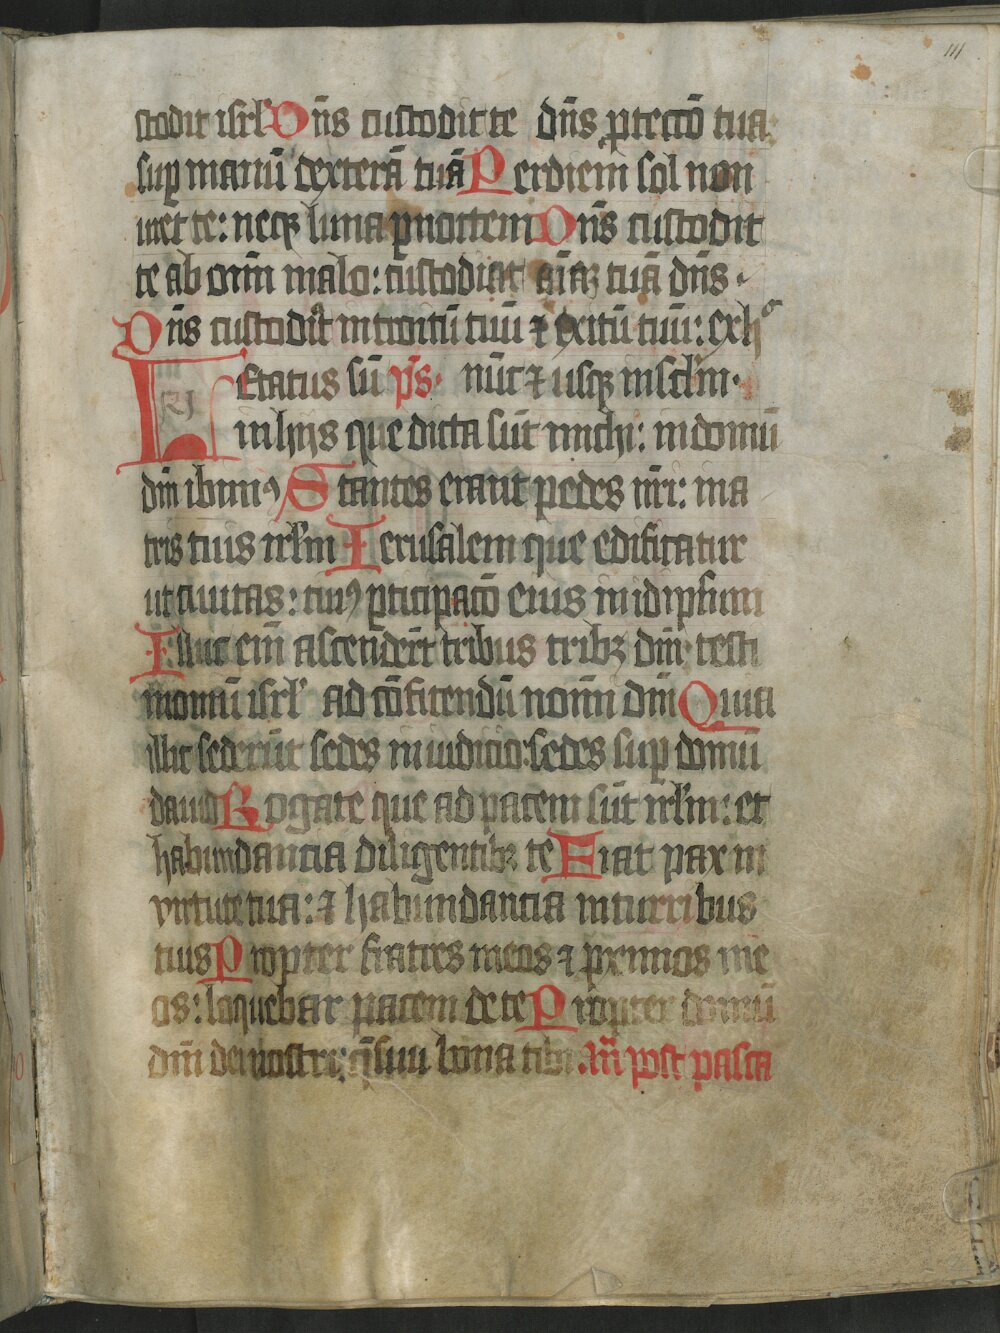 111
stodit isrl' Dn̄s custodit te dn̄s ꝓteccō tua
suꝑ manū dexterā tuā Per diem sol non
uret te: neqꝫ luna ꝑ noctem Dn̄s custodit
te ab om̄i malo: custodiat aīaꝫ tuā dn̄s ·
Dn̄s custodiat introitū tuū ⁊ exitū tuū: ex h
Letatus sū ps̄· nūc ⁊ usqꝫ in sc̄lm·
in hijs que dicta sūt michi: in domū
dn̄i ibimꝰ Stantes erant pedes nr̄i: in a
triis tuis irl'm Ierusalem que edificatur
ut ciuitas: cuiꝰ ꝑticipacō eius in idipsum
Illuc eni͂ ascenderūt tribus tribꝫ dn̄i: testi
moniū isrl' ad cōfitendū nomī dn̄i Quia
illic sederūt sedes in iudicio: sedes suꝑ domū
dauid Rogate que ad pacem sūt irl'm: et
habundancia diligentibꝫ te Fiat pax in
virtute tua: ⁊ habundancia in turribus
tuis Propter fratres meos ⁊ proximos me
os: loquebar pacem de te Propter domū
dn̄i dei nostri: q̄siui bona tibi. An̄ post pasca